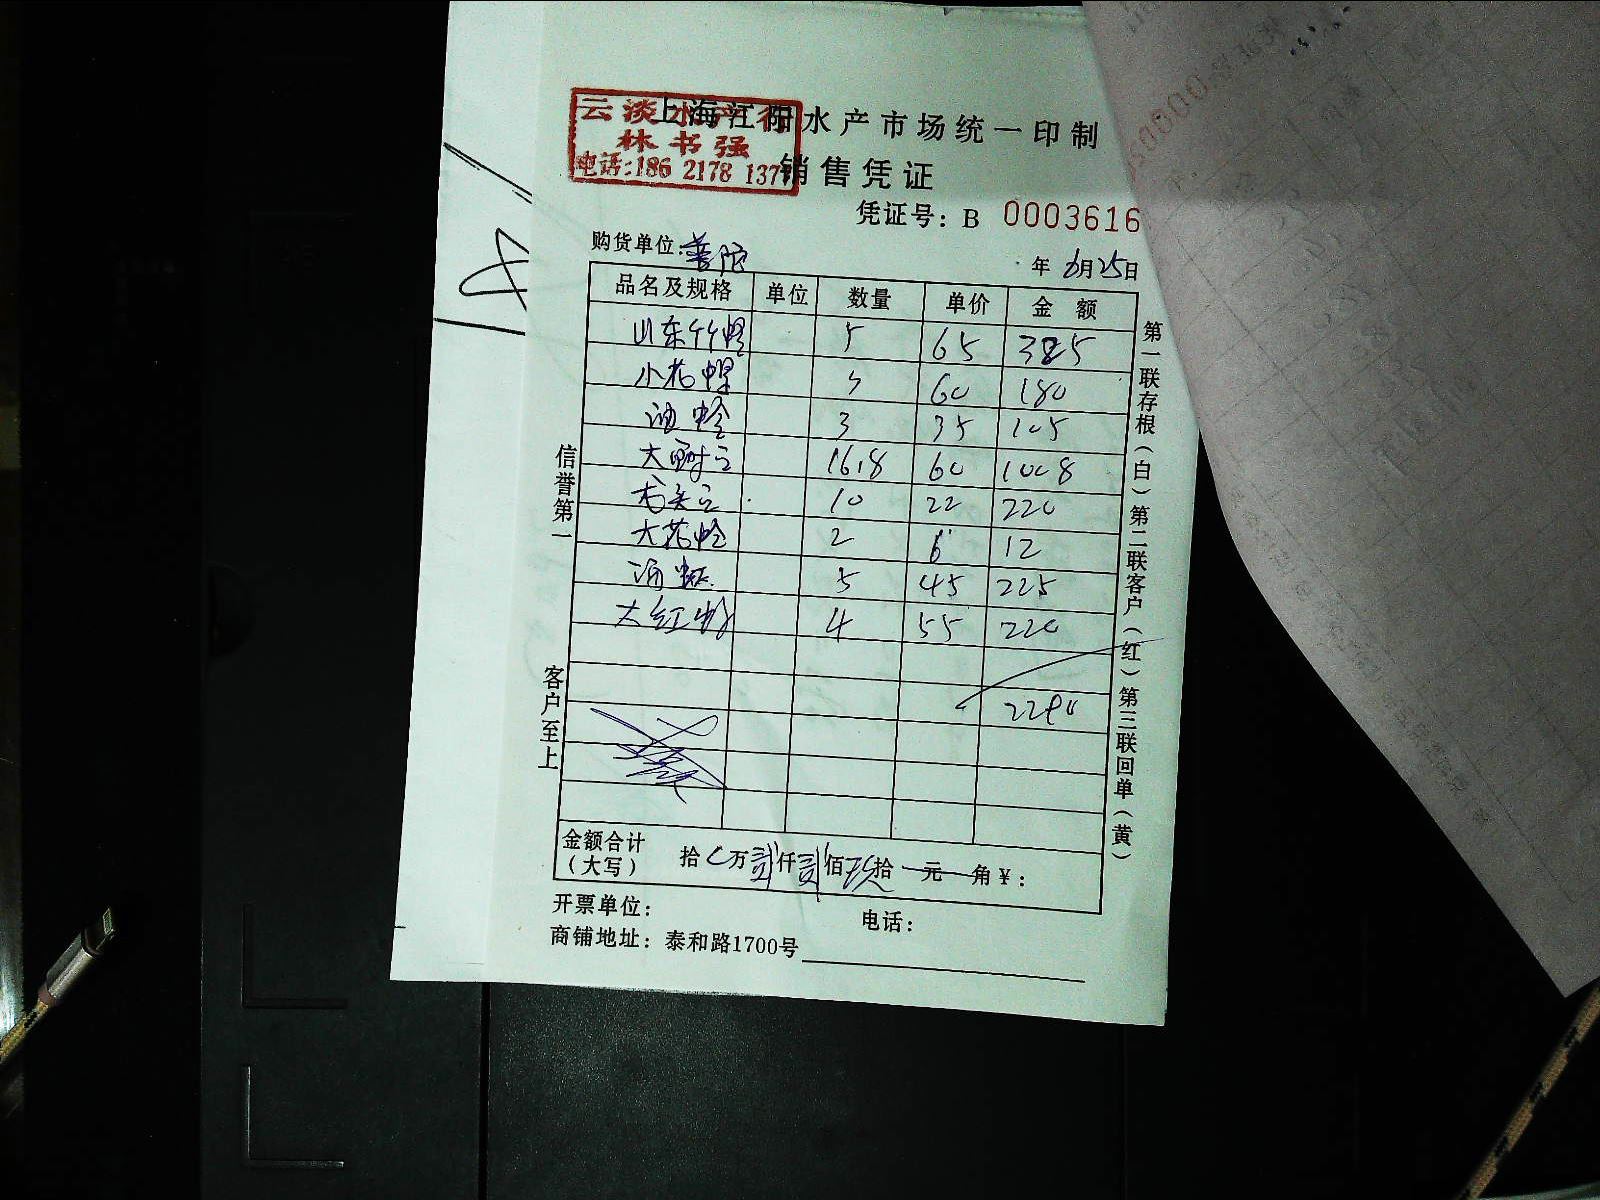 云淡水产行
林书强
电话:186 2178 137
上海江阳水产市场统一印制
销售凭证
凭证号: B 0003616
购货单位: 普陀
年 6月25日
品名及规格 单位 数量 单价 金 额
山东竹蛏 5 65 325
小花甲 3 60 180
油蛤 3 35 105
大 16.8 60 1008
10 22 220
大花蛤 2 6 12
5 45 225
大红 4 55 220
2290
金额合计
(大写) 拾 万贰仟贰佰玖拾 元 角¥:
开票单位: 电话:
商铺地址: 泰和路1700号
信誉第一 客户至上
第一联存根(白)第二联客户(红)第三联回单(黄)